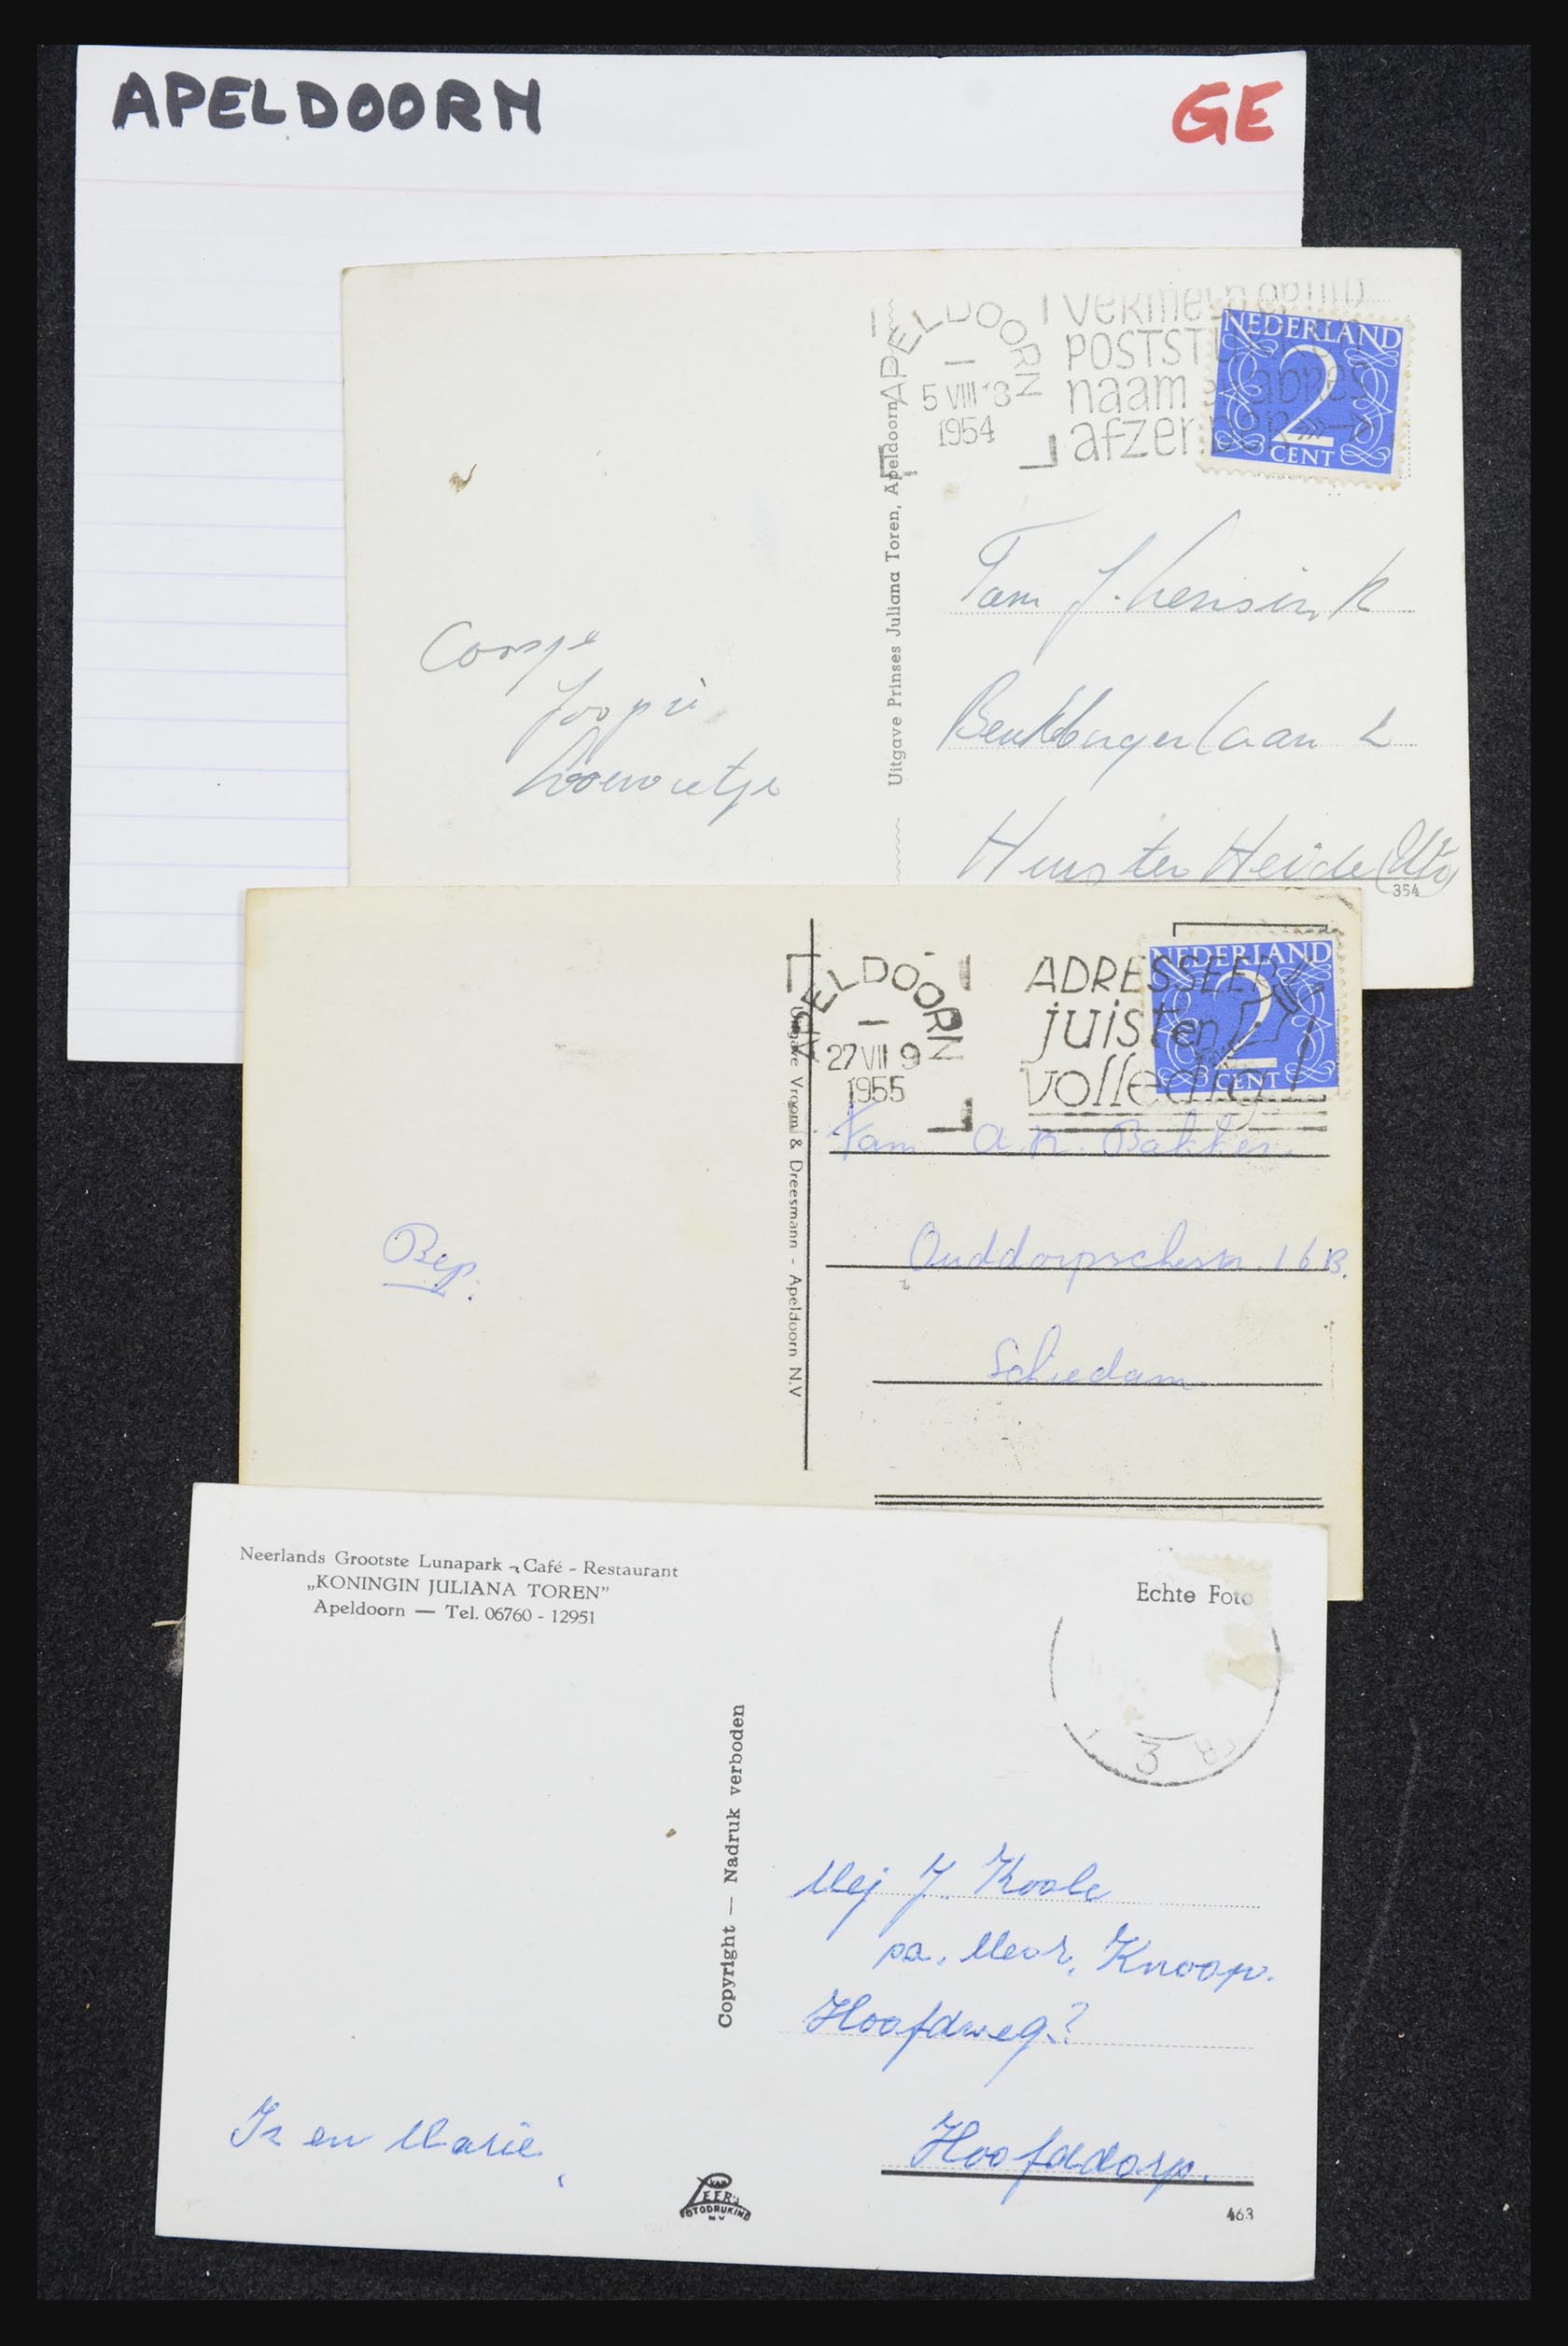 APELDOORN
GE
APELDOORN
5 VIII 18
1954
VERMELD OP UW
POSTSTUKKEN
naam en adres
afzender
NEDERLAND
2
CENT
Uitgave Prinses Juliana Toren, Apeldoorn
Fam J. Lensink
laan 2
Huis ter Heide (Utr)
354
Coosje
Joopie
APELDOORN
27 VII 9
1955
ADRESSEER
juist en
volledig
NEDERLAND
2
CENT
Uitgave Vroom & Dreesmann - Apeldoorn N.V
Fam A.K. Bakker.
Ouddorpschestr. 16B.
Schiedam.
Bep.
Neerlands Grootste Lunapark - Café - Restaurant
„KONINGIN JULIANA TOREN”
Apeldoorn — Tel. 06760 - 12951
Echte Foto
3
Copyright — Nadruk verboden
Mej J. Koole
pa. Mevr. Knoop.
Hoofdweg?
Hoofddorp.
Is en Marie.
VAN
LEER'S
FOTODRUKIND
N V
463